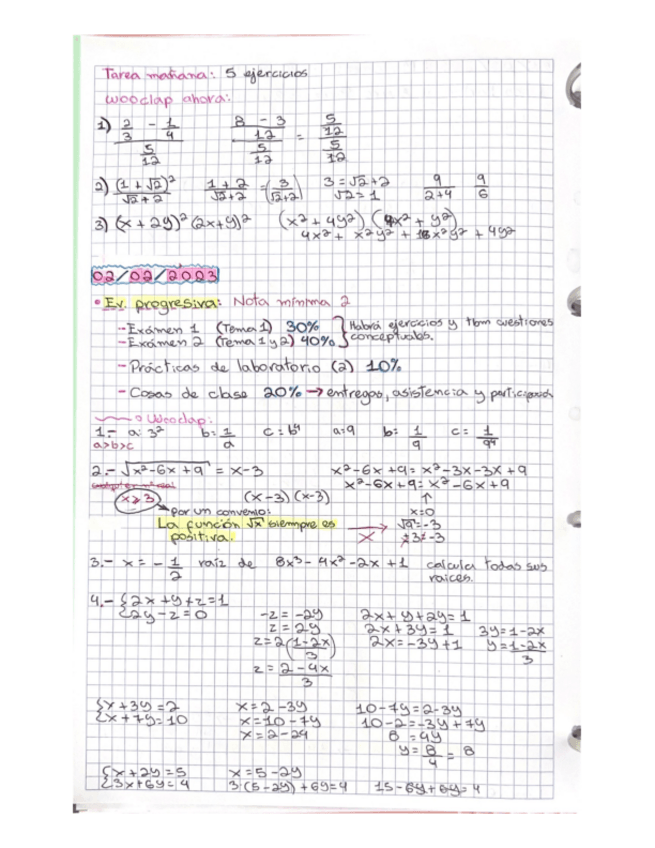 Tarea mañana: 5 ejercicios
wooclap ahora:
1) (2/3 - 1/4)/(5/12) ((8 - 3)/12)/(5/12) = (5/12)/(5/12)
2) (1 + √2)²/(√2 + 2) (1 + 2)/(√2+2) = (3/(√2+2)) 3 = √2 + 2 √2 = 1 9/(2+4) 9/6
3) (x + 2y)² (2x + y)² (x² + 4y²) (4x² + y²)
4x² + x²y² + 16x²y² + 4y²
02/02/2023
• Ev. progresiva: Nota mínima 2
- Exámen 1 (Tema 1) 30% } Habrá ejercicios y tbm cuestiones
- Exámen 2 (Tema 1 y 2) 40% } conceptuales.
- Prácticas de laboratorio (2) 10%
- Cosas de clase 20% → entregas, asistencia y
Wooclap:
1.- a: 3² b = 1/a c = b⁴ a = 9 b = 1/9 c = 1/9⁴
a>b>c
2.- √(x²-6x+9) = x-3 x²-6x+9 = x²-3x-3x+9
x²-6x+9 = x²-6x+9
x ≥ 3 (x-3)(x-3) ↑
por un convenio: x=0
La función √x siempre es → √9 = -3
positiva. X 3 ≠ -3
3.- x = -1/2 raíz de 8x³ - 4x² - 2x + 1 calcula todas sus
raíces.
4.- {2x + y + z = 1
{2y - z = 0 -z = -2y 2x + y + 2y = 1
z = 2y 2x + 3y = 1 3y = 1-2x
z = 2((1-2x)/3) 2x = -3y + 1 y = (1-2x)/3
z = (2-4x)/3
{x + 3y = 2 x = 2 - 3y 10 - 7y = 2 - 3y
{x + 7y = 10 x = 10 - 7y 10 - 2 = -3y + 7y
x = 2 - 24 8 = 4y
y = 8/4 = 8
{x + 2y = 5 x = 5 - 2y
{3x + 6y = 4 3·(5 - 2y) + 6y = 4 15 - 6y + 6y = 4